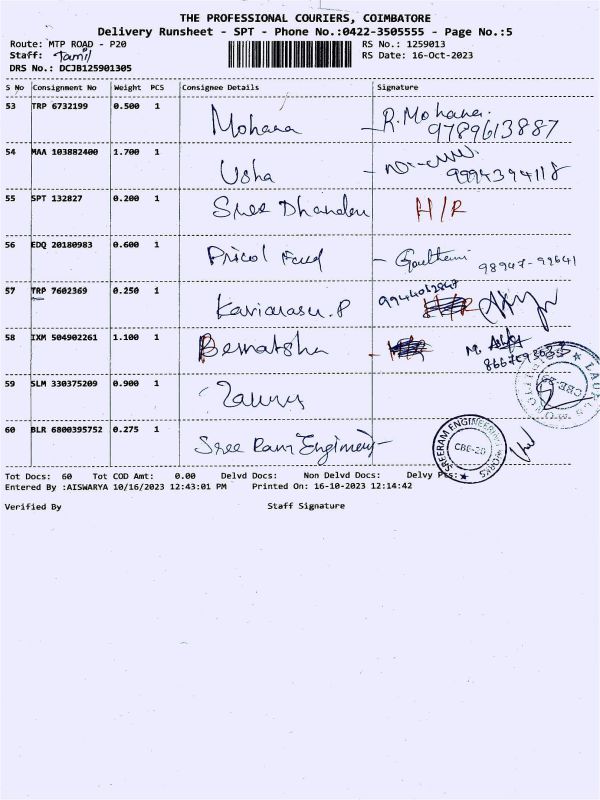 THE PROFESSIONAL COURIERS, COIMBATORE
Delivery Runsheet - SPT - Phone No.:0422-3505555 - Page No.:5
Route: MTP ROAD - P20 RS No.: 1259013
Staff: Tamil RS Date: 16-Oct-2023
DRS No.: DCJB125901305
S No Consignment No Weight PCS Consignee Details Signature
53 TRP 6732199 0.500 1 Mohana R. Mohana. 9789613887
54 MAA 103882400 1.700 1 Usha 9994394118
55 SPT 132827 0.200 1 Sree H/R
56 EDQ 20180983 0.600 1 Pricol 98947-99641
57 TRP 7602369 0.250 1 Kaviarasu.P 9944012847
58 IXM 504902261 1.100 1
59 SLM 330375209 0.900 1
60 BLR 6800395752 0.275 1 Sree Ram SREERAM ENGINEERING WORKS CBE-20
Tot Docs: 60 Tot COD Amt: 0.00 Delvd Docs: Non Delvd Docs: Delvy Pcs:
Entered By :AISWARYA 10/16/2023 12:43:01 PM Printed On: 16-10-2023 12:14:42
Verified By Staff Signature